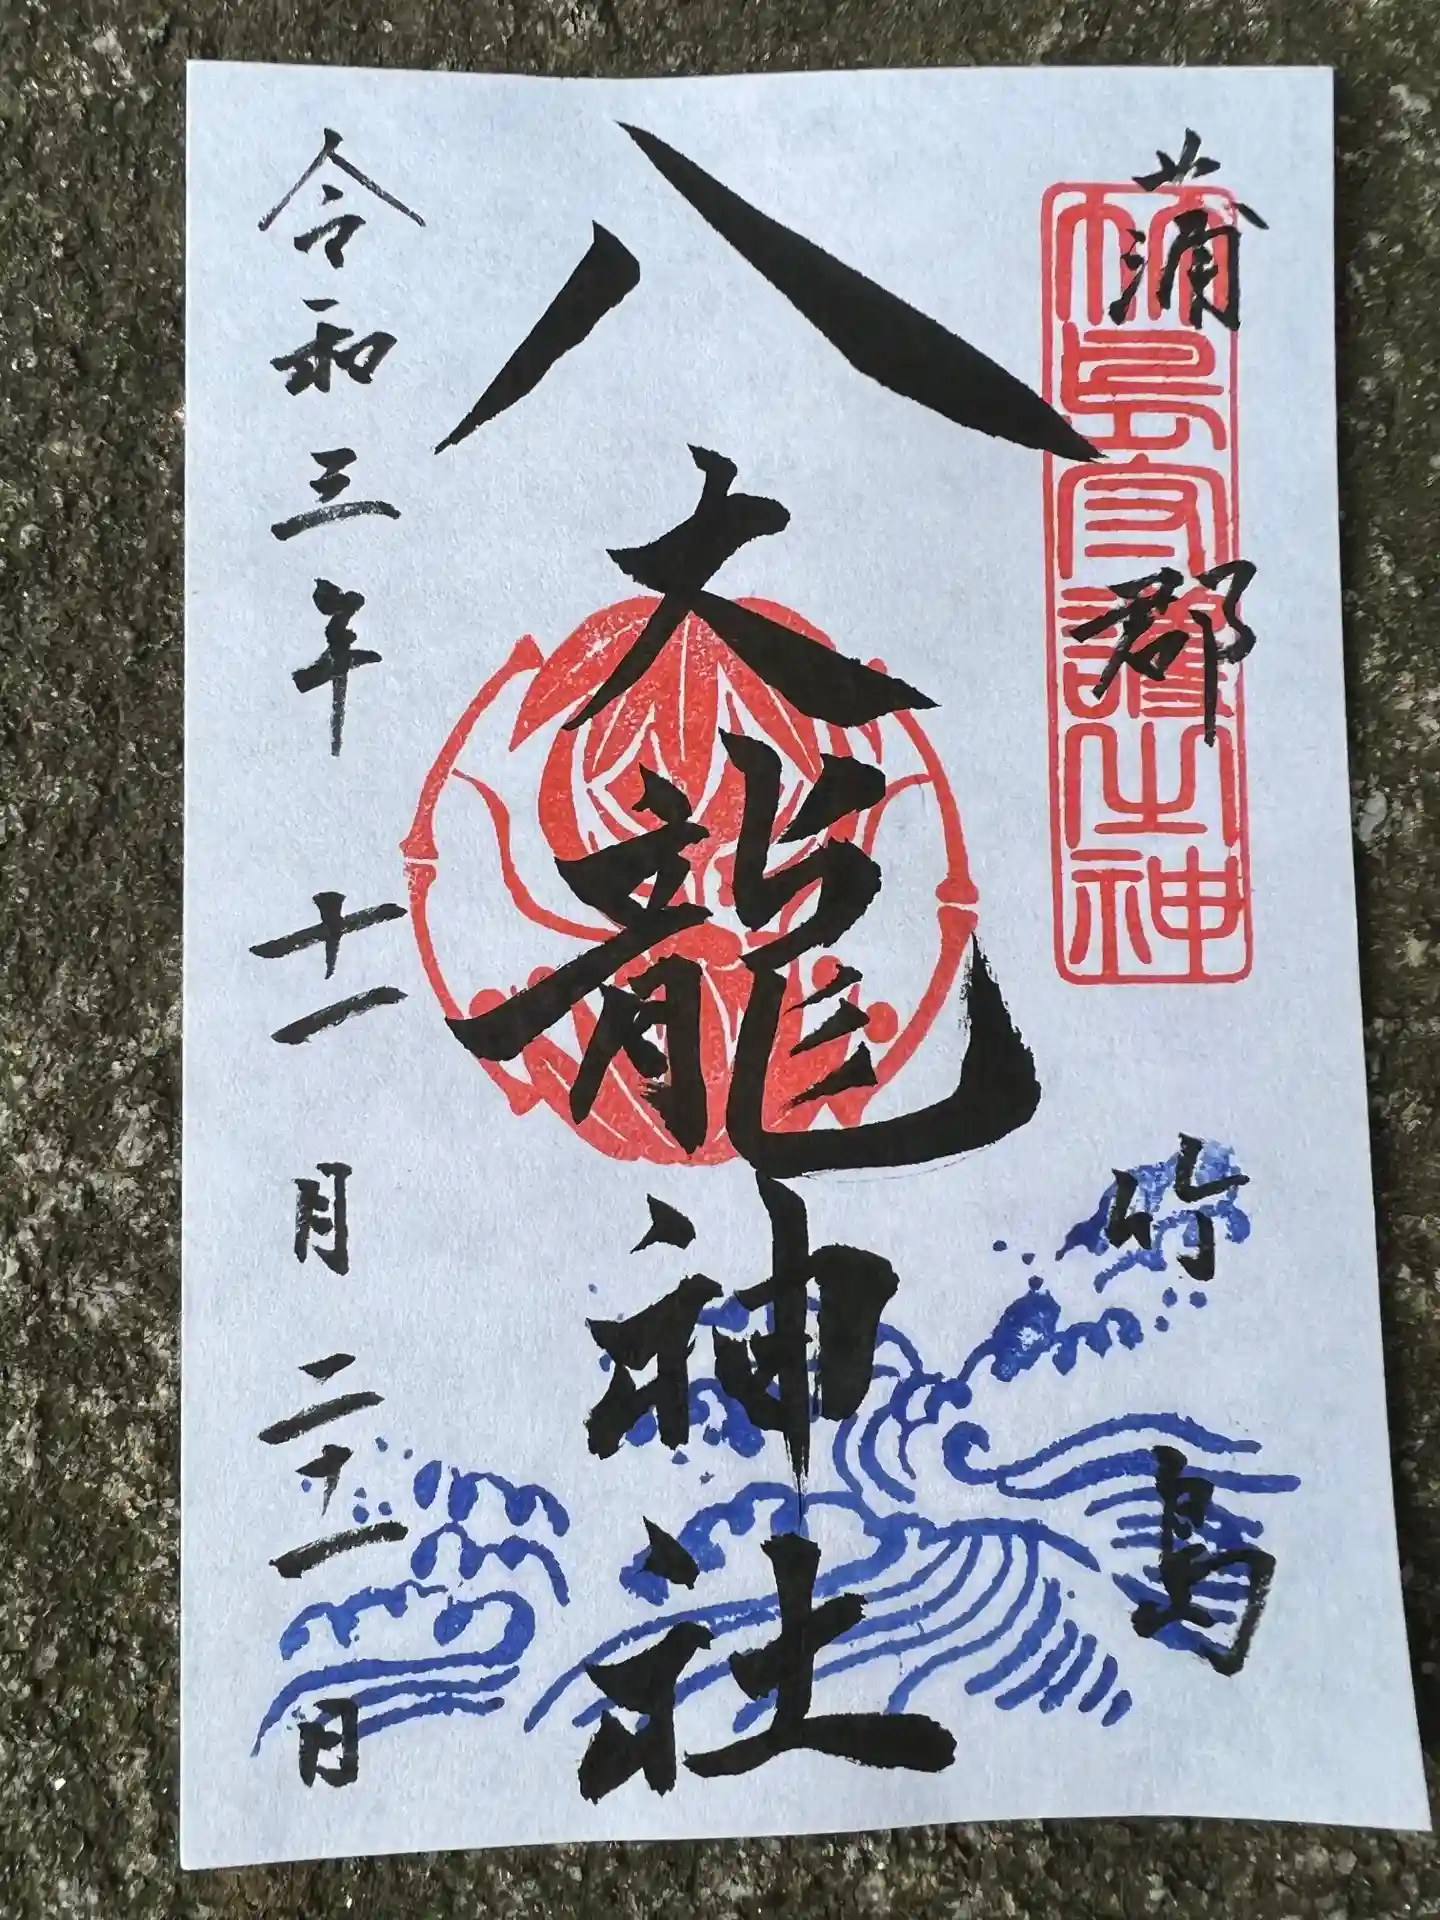 蒲郡 竹島
竹島守護之神
八大龍神社
令和三年十一月二十一日